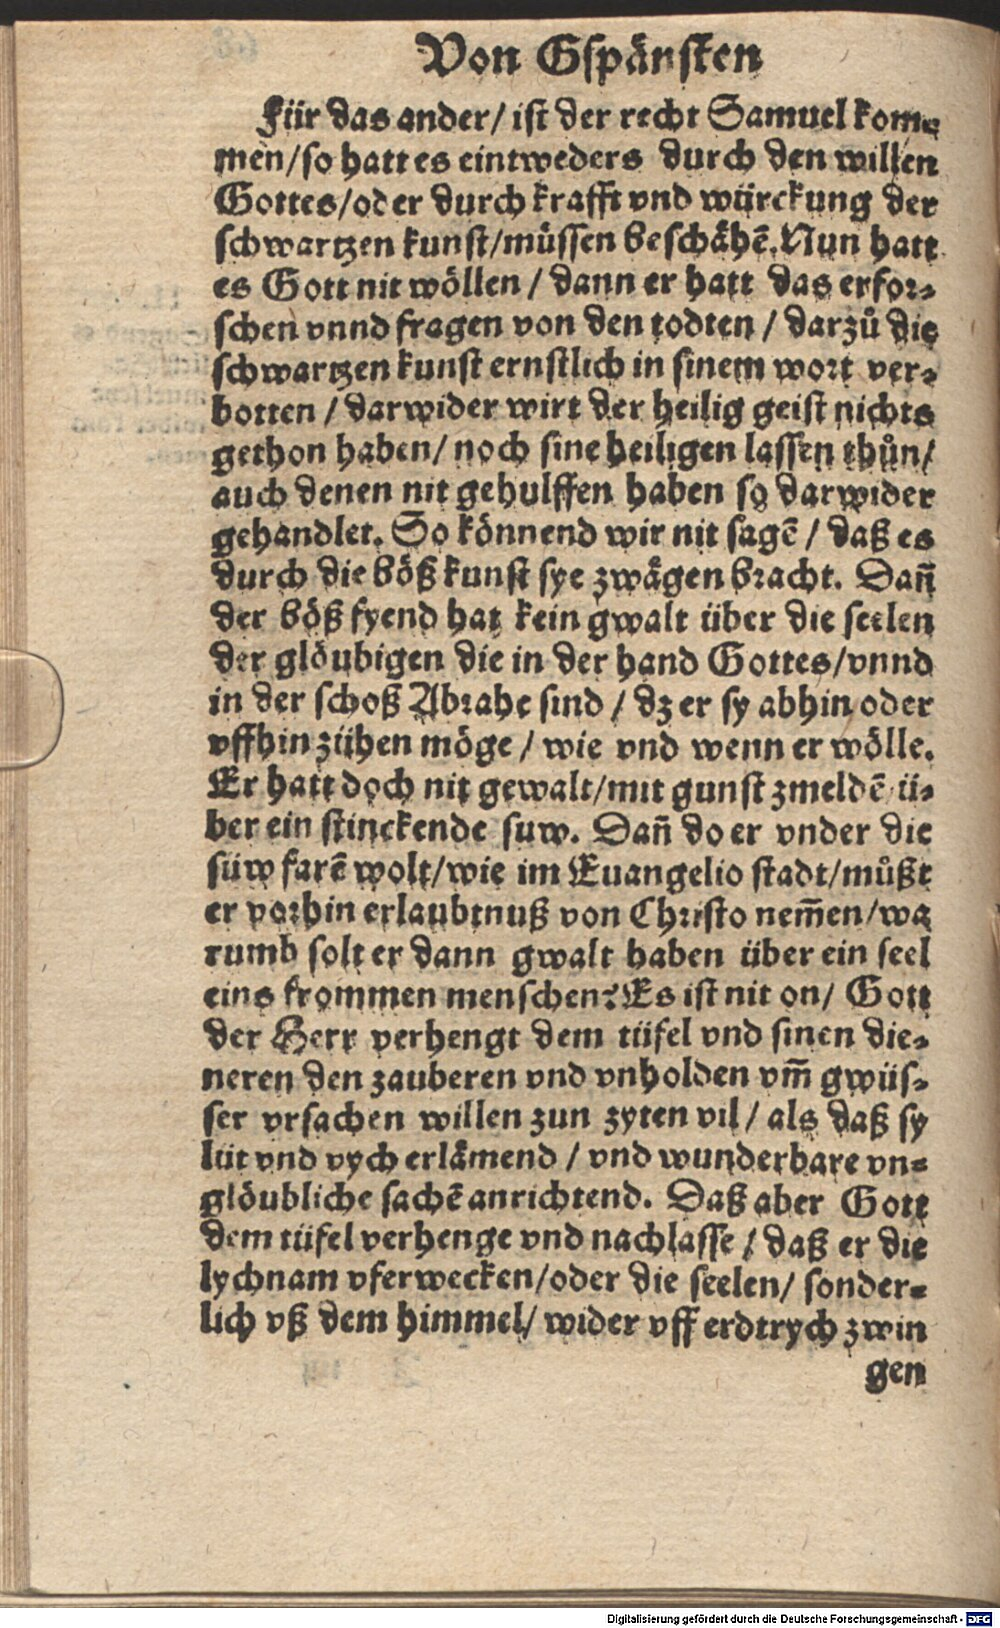 Von Gspänsten
Für das ander/ ist der recht Samuel kom⸗
men/so hatt es eintweders durch den willen
Gottes/oder durch krafft vnd würckung der
schwartzen kunst/müssen beschähē. Nun hatt
es Gott nit wöllen / dann er hatt das erfor⸗
schen vnnd fragen von den todten / darzů die
schwartzen kunst ernstlich in sinem wort ver⸗
botten / darwider wirt der heilig geist nichts
gethon haben/ noch sine heiligen lassen thůn/
auch denen nit gehulffen haben so darwider
gehandlet. So könnend wir nit sagē / daß es
durch die böß kunst sye zwägen bracht. Dañ
der böß fyend hat kein gwalt über die seelen
der glöubigen die in der hand Gottes/vnnd
in der schoß Abrahe sind / dz er sy abhin oder
vffhin zühen möge / wie vnd wenn er wölle.
Er hatt doch nit gewalt/mit gunst zmeldē ü⸗
ber ein stinckende suw. Dañ do er vnder die
süw farē wolt/wie im Euangelio stadt/můßt
er vorhin erlaubtnuß von Christo nem̄en/wa
rumb solt er dann gwalt haben über ein seel
eins frommen menschen? Es ist nit on/ Gott
der Herr verhengt dem tüfel vnd sinen die⸗
neren den zauberen vnd vnholden vm̄ gwüs⸗
ser vrsachen willen zun zyten vil / als daß sy
lüt vnd vych erlämend / vnd wunderbare vn⸗
glöubliche sachē anrichtend. Daß aber Gott
dem tüfel verhenge vnd nachlasse / daß er die
lychnam vferwecken/oder die seelen/ sonder⸗
lich vß dem himmel/ wider vff erdtrych zwin
gen
Digitalisierung gefördert durch die Deutsche Forschungsgemeinschaft - DFG